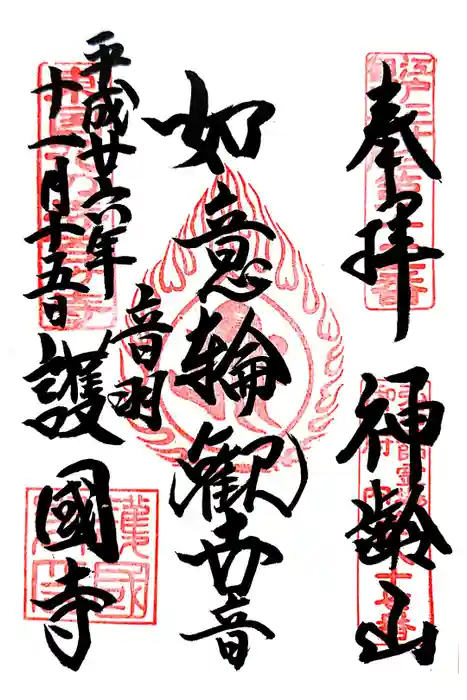 奉拝
神齢山
如意輪観世音
音羽
護國寺
平成廿六年
十一月十五日